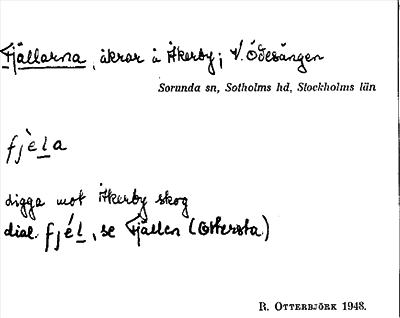 Fjällarna, åkrar å Åkerby; V. Ödesängen
Sorunda sn, Sotholms hd, Stockholms län
fjèla
digga mot Åkerby skog
dial. fjél, se Fjällen (Ottersta)
R. OTTERBJÖRK 1948.